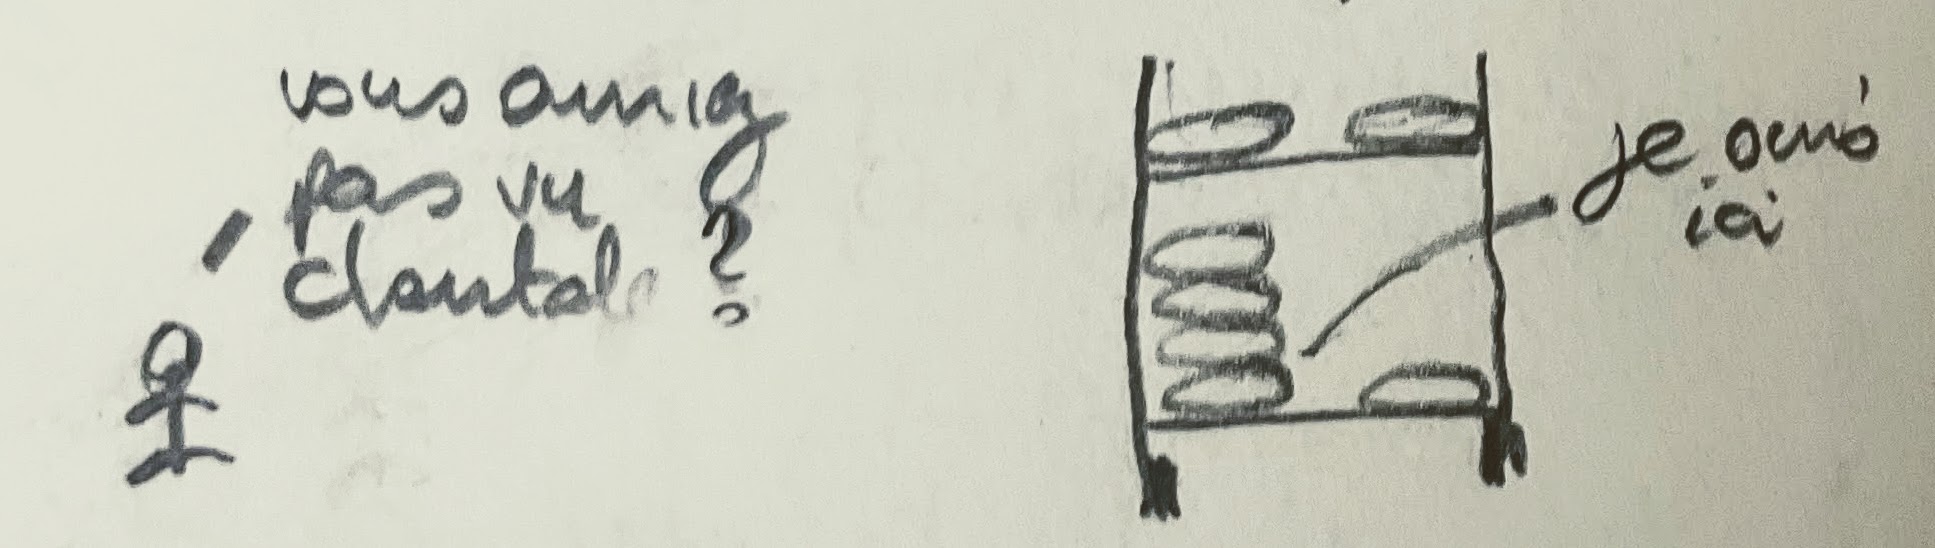 vous auriez
pas vu
chantale ?
je suis
ici